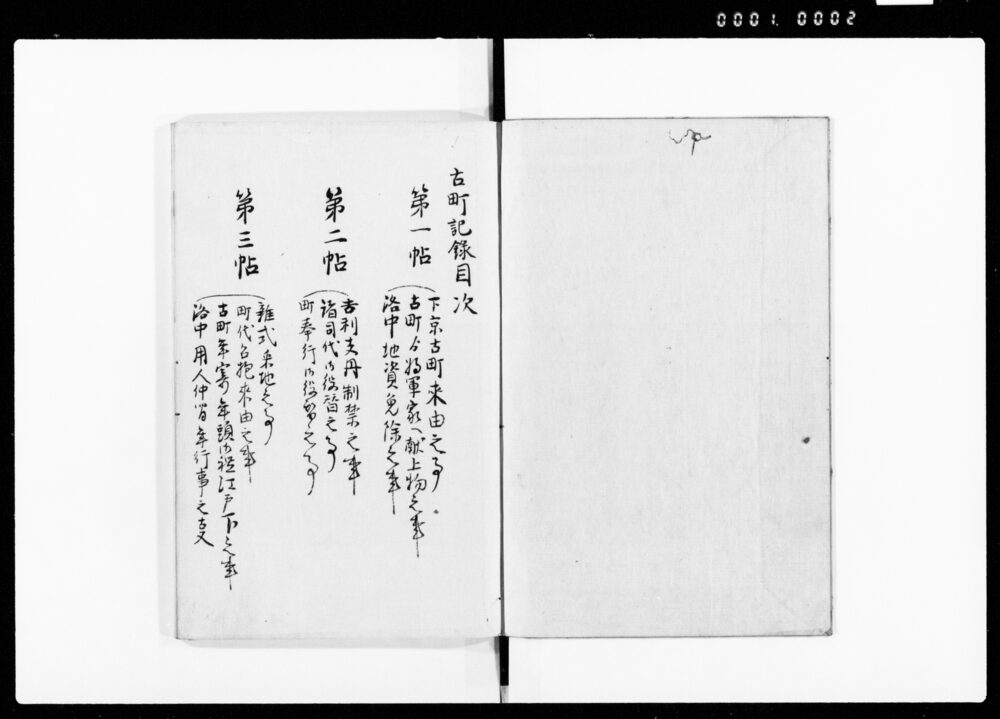 0001. 0002
古町記録目次
第一帖
下京古町来由之事
古町ゟ将軍家へ献上物之事
洛中地資免除之事
第二帖
吉利支丹制禁之事
諸司代御役替之事
町奉行御役替之事
第三帖
雑式采地之事
町代召抱来由之事
古町年寄年頭御礼江戸下之事
洛中用人仲間年行事之古文